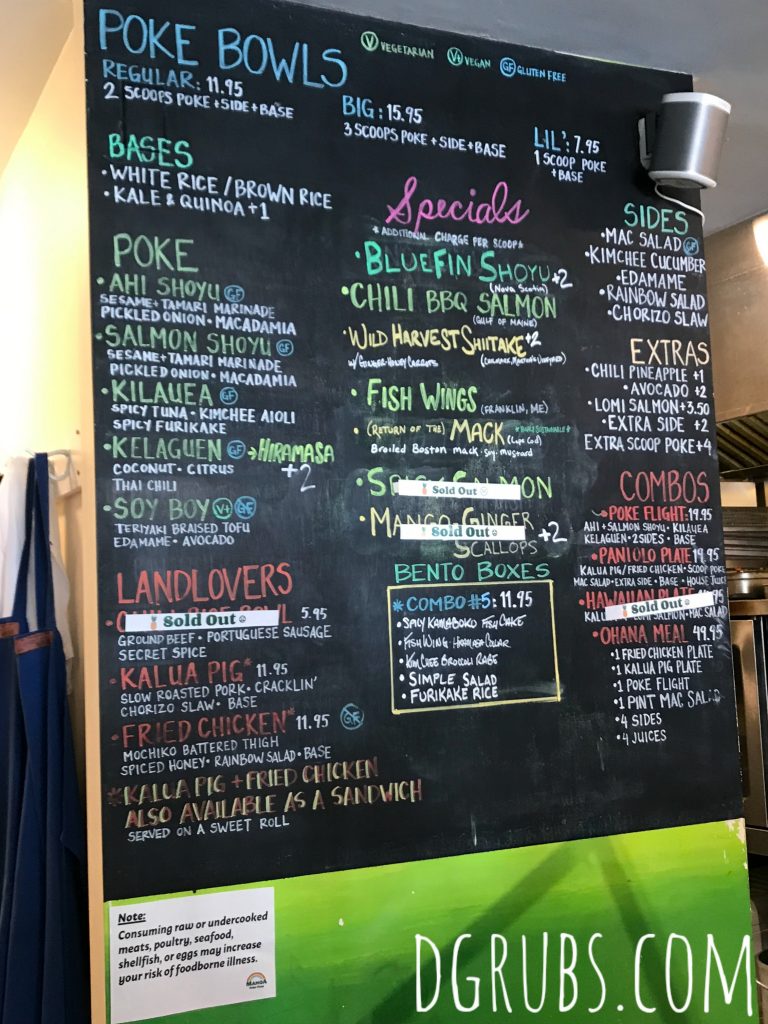 POKE BOWLS
V VEGETARIAN
V+ VEGAN
GF GLUTEN FREE
REGULAR: 11.95
2 SCOOPS POKE + SIDE + BASE
BIG: 15.95
3 SCOOPS POKE + SIDE + BASE
LIL': 7.95
1 SCOOP POKE
+ BASE
BASES
• WHITE RICE / BROWN RICE
• KALE & QUINOA +1
POKE
• AHI SHOYU GF
SESAME + TAMARI MARINADE
PICKLED ONION • MACADAMIA
• SALMON SHOYU GF
SESAME + TAMARI MARINADE
PICKLED ONION • MACADAMIA
• KILAUEA GF
SPICY TUNA • KIMCHEE AIOLI
SPICY FURIKAKE
• KELAGUEN GF → HIRAMASA
+2
COCONUT • CITRUS
THAI CHILI
• SOY BOY V+ GF
TERIYAKI BRAISED TOFU
EDAMAME • AVOCADO
LANDLOVERS
Sold Out
5.95
GROUND BEEF • PORTUGUESE SAUSAGE
SECRET SPICE
• KALUA PIG* 11.95
SLOW ROASTED PORK • CRACKLIN'
CHORIZO SLAW • BASE
• FRIED CHICKEN* 11.95 GF
MOCHIKO BATTERED THIGH
SPICED HONEY • RAINBOW SALAD • BASE
*KALUA PIG + FRIED CHICKEN
ALSO AVAILABLE AS A SANDWICH
SERVED ON A SWEET ROLL
Specials
* ADDITIONAL CHARGE PER SCOOP *
• BLUEFIN SHOYU +2
(Nova Scotia)
• CHILI BBQ SALMON
(GULF OF MAINE)
• WILD HARVEST SHIITAKE +2
W/ GINGER-HONEY CARROTS
(CHILMARK, MARTHA'S VINEYARD)
• FISH WINGS (FRANKLIN, ME)
• (RETURN OF THE) MACK (Cape Cod)
Broiled Boston mack • soy • mustard
Sold Out
• MANGO GINGER
Sold Out
SCALLOPS +2
BENTO BOXES
* COMBO #5: 11.95
• SPICY KAMABOKO FISH CAKE
• KIM CHEE BROCCOLI RABE
• SIMPLE SALAD
• FURIKAKE RICE
SIDES
• MAC SALAD GF
• KIMCHEE CUCUMBER
• EDAMAME
• RAINBOW SALAD
• CHORIZO SLAW
EXTRAS
• CHILI PINEAPPLE +1
• AVOCADO +2
• LOMI SALMON +3.50
• EXTRA SIDE +2
EXTRA SCOOP POKE +4
COMBOS
• POKE FLIGHT: 19.95
AHI + SALMON SHOYU • KILAUEA
KELAGUEN • 2 SIDES • BASE
• PANIOLO PLATE 19.95
KALUA PIG / FRIED CHICKEN • SCOOP POKE
MAC SALAD • EXTRA SIDE • BASE • HOUSE JUICE
• HAWAIIAN PLATE
Sold Out
MAC SALAD
• OHANA MEAL 49.95
• 1 FRIED CHICKEN PLATE
• 1 KALUA PIG PLATE
• 1 POKE FLIGHT
• 1 PINT MAC SALAD
• 4 SIDES
• 4 JUICES
Note:
Consuming raw or undercooked
meats, poultry, seafood,
shellfish, or eggs may increase
your risk of foodborne illness.
MANOA
DGRUBS.COM